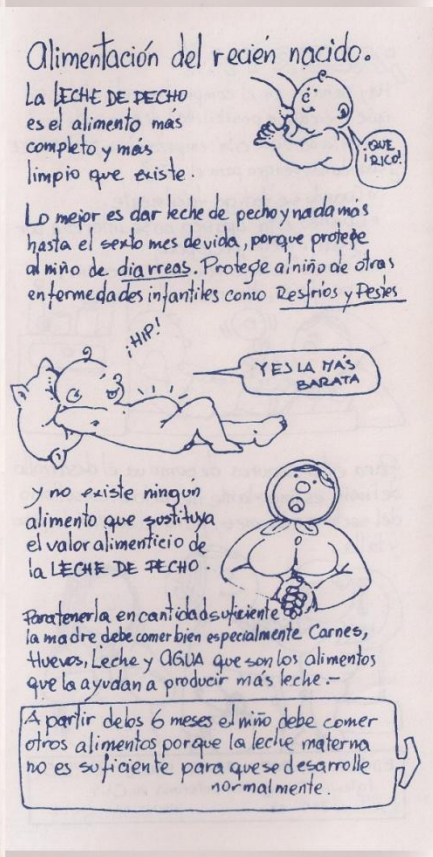 Alimentación del recién nacido.
La LECHE DE PECHO
es el alimento más
completo y más
limpio que existe.
¡QUE
RICO!
Lo mejor es dar leche de pecho y nada más
hasta el sexto mes de vida, porque protege
al niño de diarreas. Protege al niño de otras
enfermedades infantiles como Resfrios y Pestes
¡HIP!
Y ES LA MÁS
BARATA
y no existe ningun
alimento que sustituya
el valor alimenticio de
la LECHE DE PECHO.
Para tenerla en cantidad suficiente
la madre debe comer bien especialmente Carnes,
Huevos, Leche y AGUA que son los alimentos
que la ayudan a producir más leche.-
A partir de los 6 meses el niño debe comer
otros alimentos porque la leche materna
no es suficiente para que se desarrolle
normalmente.